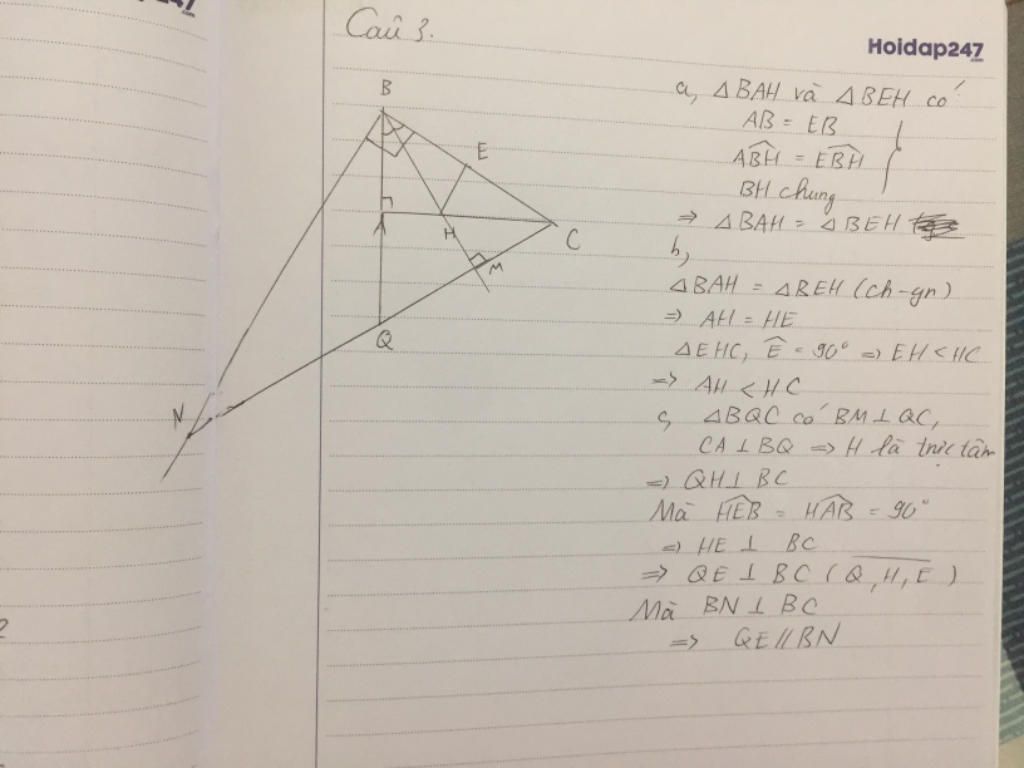 247
.com
Câu 3.
Hoidap247
.com
B
E
A
H
C
M
Q
N
2
a, △BAH và △BEH có
AB = EB
ABH = EBH
BH chung
=> △BAH = △BEH
b,
△BAH = △BEH (ch-gn)
=> AH = HE
△EHC, Ê = 90° => EH < HC
=> AH < HC
c, △BQC có BM ⊥ QC,
CA ⊥ BQ => H là trực tâm
=> QH ⊥ BC
Mà HEB = HAB = 90°
=> HE ⊥ BC
=> QE ⊥ BC (Q, H, E)
Mà BN ⊥ BC
=> QE // BN